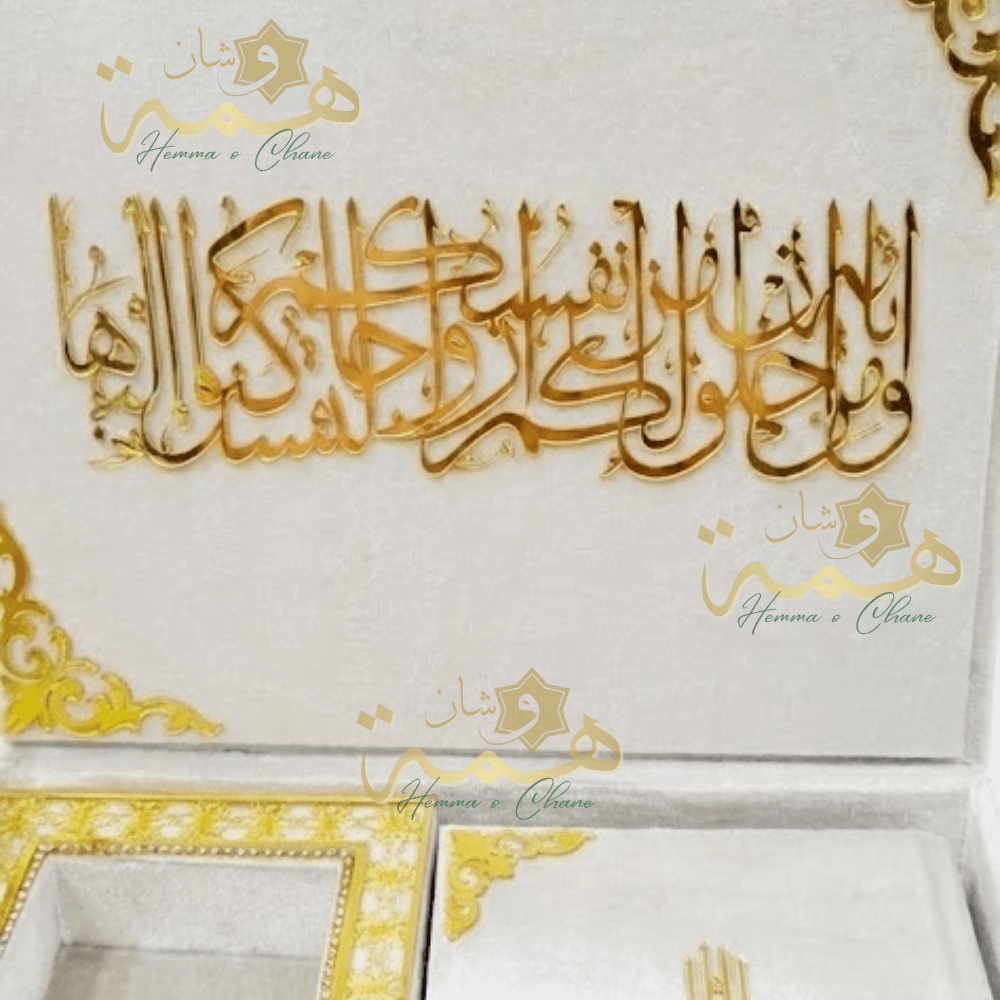 همة و شان
Hemma o Chane
ومن آياته أن خلق لكم من أنفسكم أزواجا لتسكنوا إليها
همة و شان
Hemma o Chane
همة و شان
Hemma o Chane